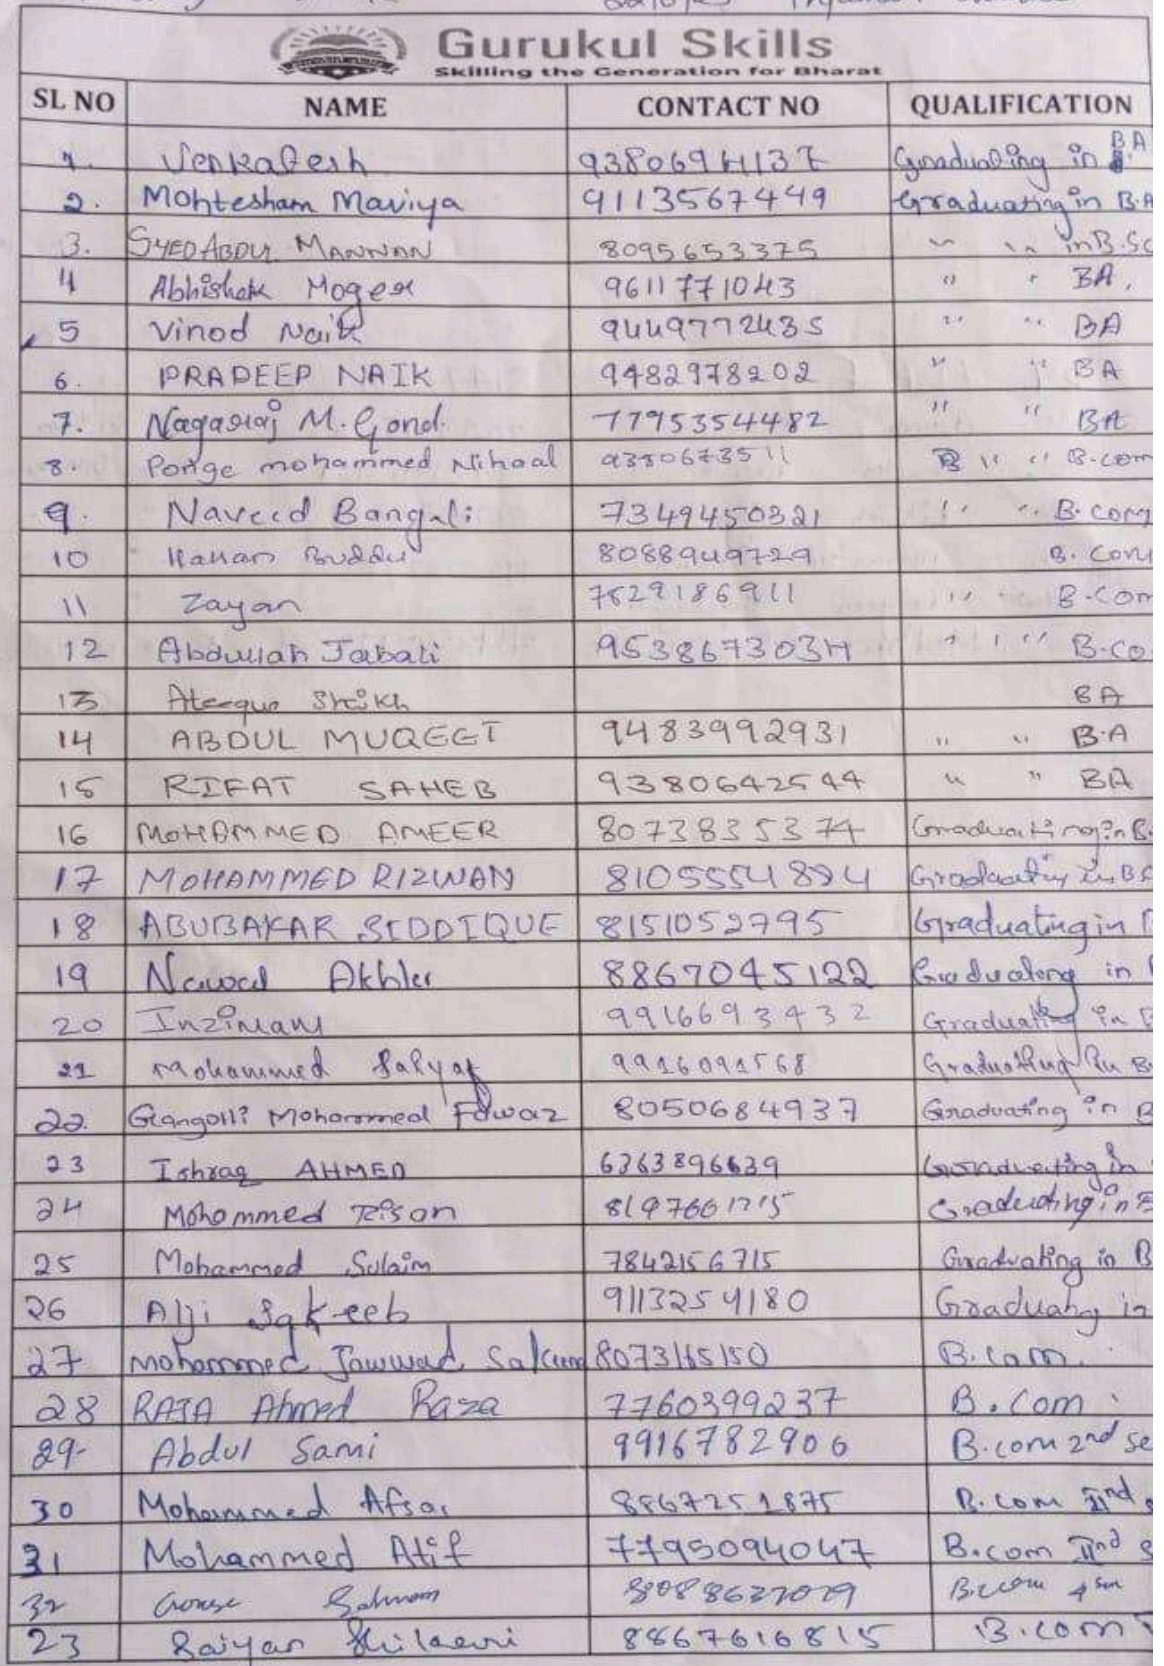 Gurukul Skills
Skilling the Generation for Bharat
SL NO NAME CONTACT NO QUALIFICATION
1. Venkatesh 9380694137 Graduating in B.A
2. Mohtesham Maviya 9113567449 Graduating in B.A
3. SYED ABDUL MANNAN 8095653375 " " in B.Sc
4 Abhishek Moger 9611771043 " " BA.
5 Vinod Naik 9449772435 " " BA
6. PRADEEP NAIK 9482978202 " " BA
7. Nagaraj M. Gond. 7795354482 " " BA
8. Ponge mohammed Nihaal 9380673511 B " " B.com
9. Naveed Bangali 7349450321 " " B.com
10 Hanan Buddu 8088949729 B.Com
11 Zayan 7829186911 " " B.com
12 Abdullah Jabali 9538673034 " " " B.co
13 Ateeque Sheikh BA
14 ABDUL MUQEET 9483992931 " " B.A
15 RIFAT SAHEB 9380642544 " " BA
16 MOHAMMED AMEER 8073835374 Graduating in B.
17 MOHAMMED RIZWAN 8105554894 Graduating in BA
18 ABUBAKAR SIDDIQUE 8151052795 Graduating in
19 Akhler 8867045122 Graduating in
20 Inzimam 9916693432 Graduating in B
21 Mohammed 9916091568 Graduating in B
22. Gangolli Mohammed Fawaz 8050684937 Graduating in B
23 Ishraq AHMED 6363896639 Graduating in
24 Mohommed 8197661715 Graduating in B
25 Mohammed Sulaim 7842156715 Graduating in B
26 Alji Sakeeb 9113254180 Graduating in
27 Mohammed Jawwad 8073165150 B.com.
28 RAJA Ahmed Raza 7760399237 B.Com.
29- Abdul Sami 9916782906 B.com 2nd se
30 Mohammed Afsar 8867251875 B.com IInd s
31 Mohammed Atif 7795094047 B.com IInd s
32 B.com 4 sem
23 Raiyan 8867616815 B.com